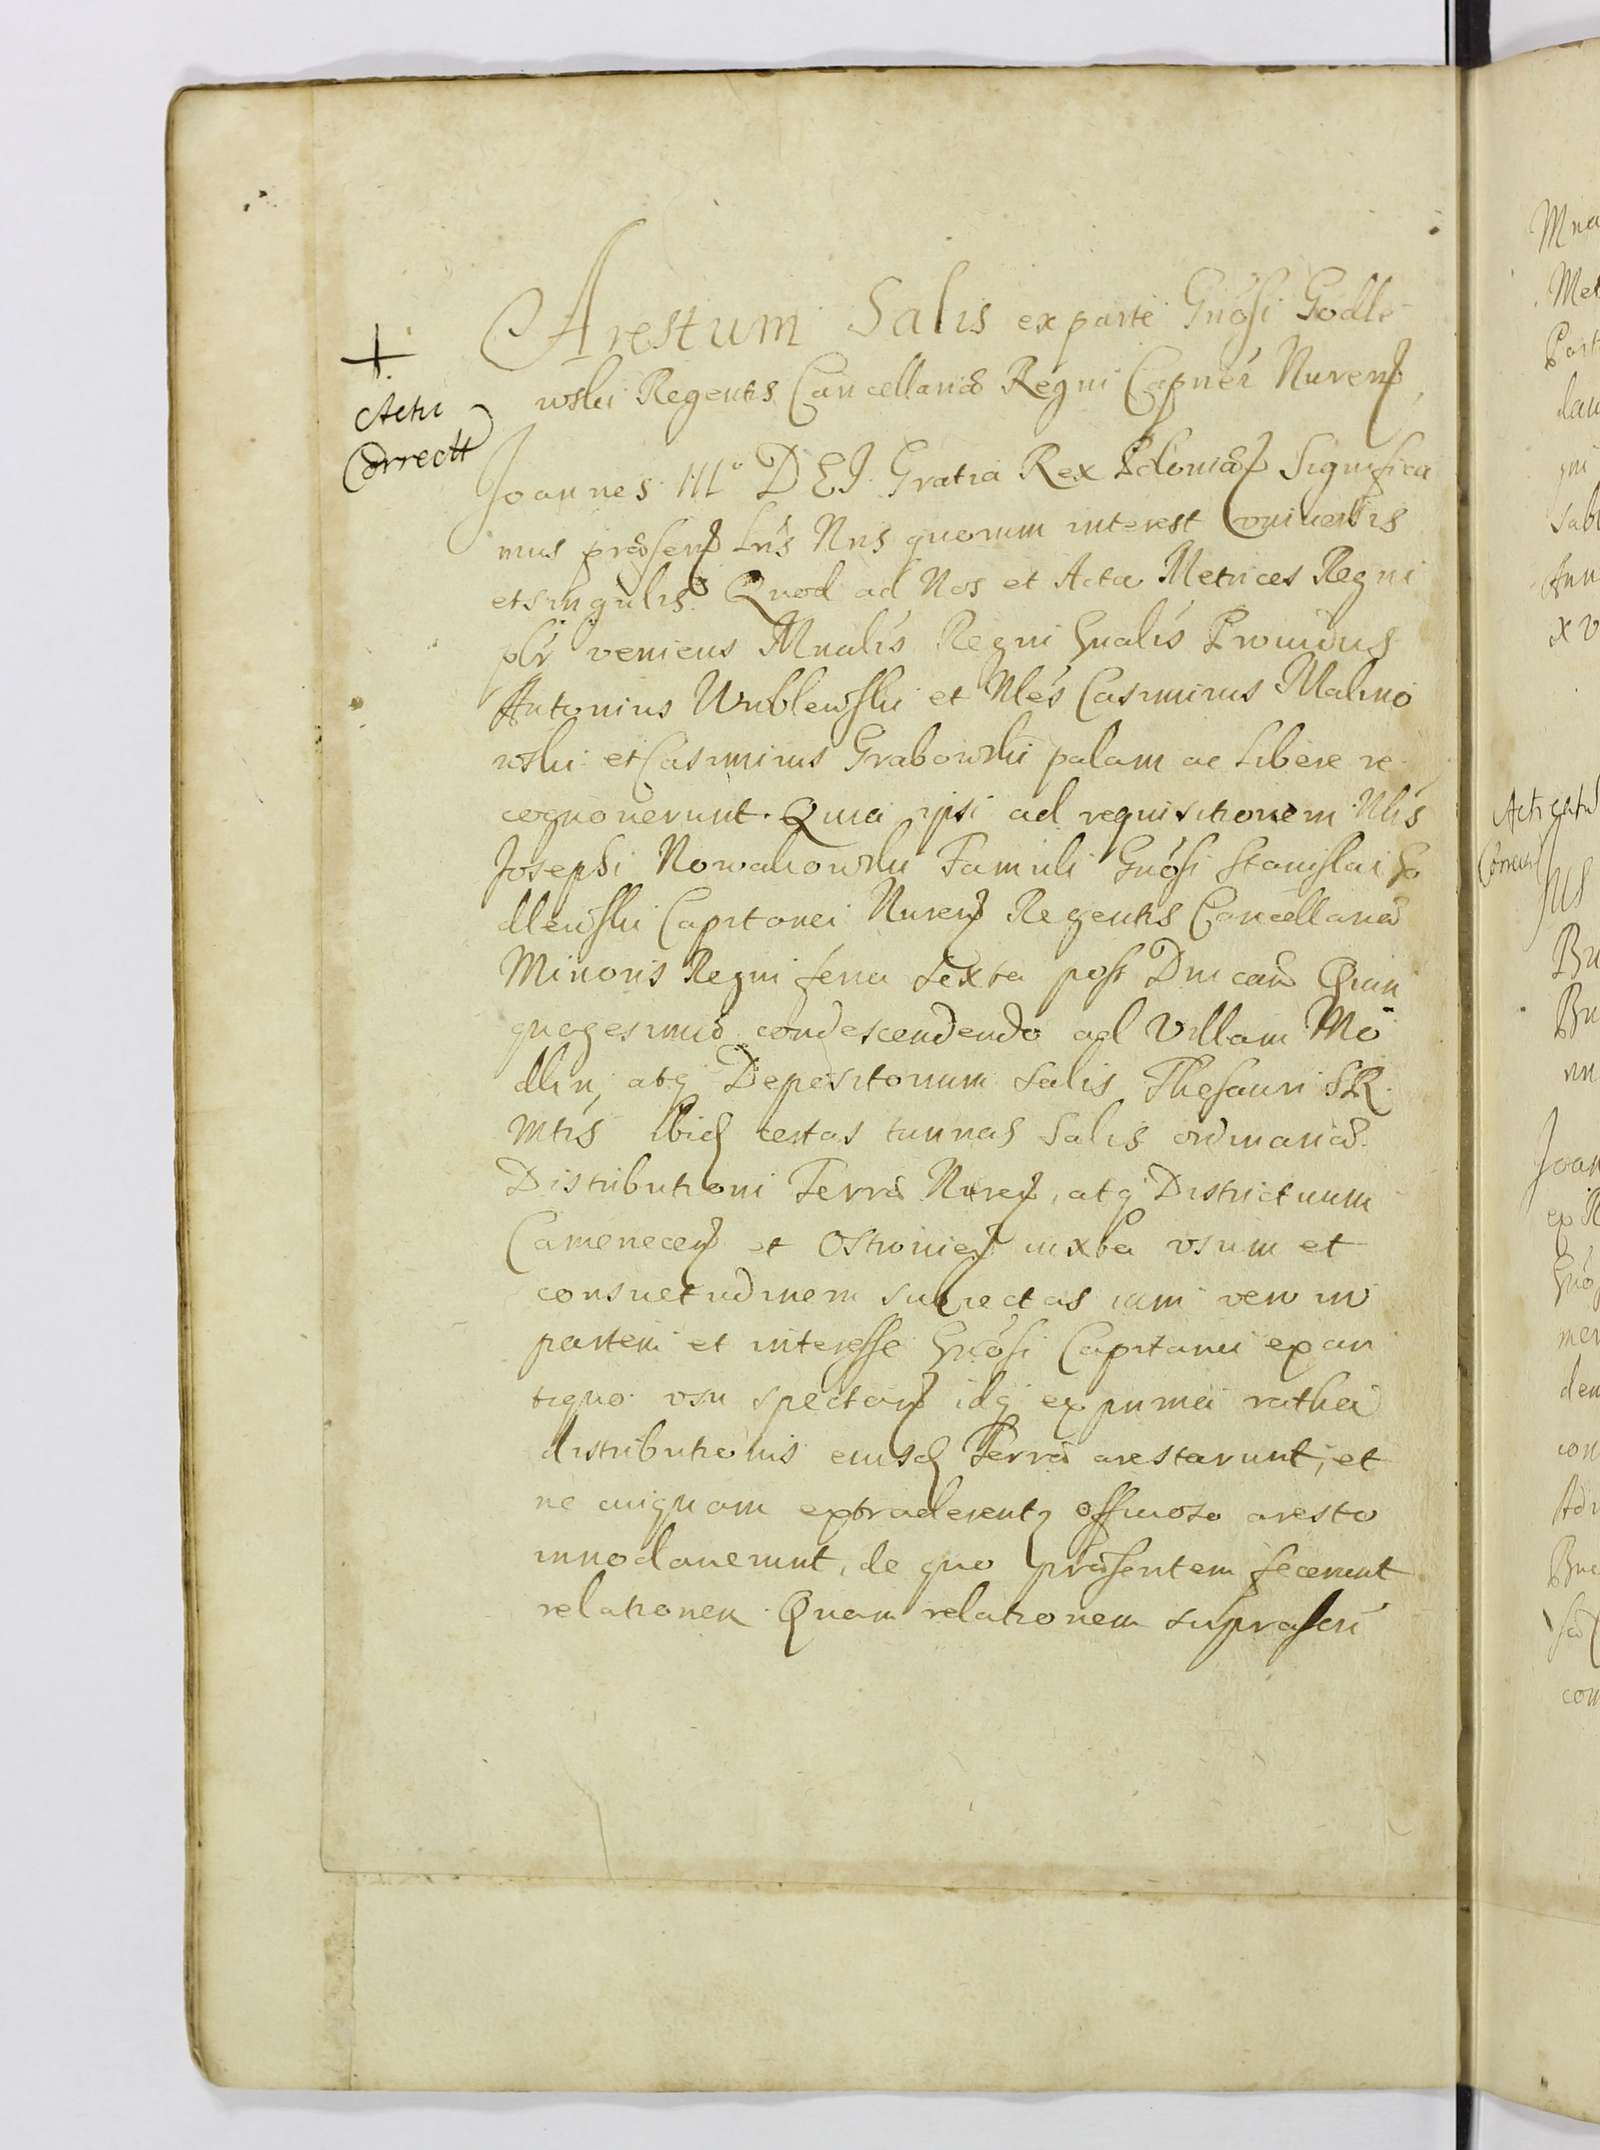 Arestum Salis ex parte Gnósi Godle
wski Regentis Cancellariæ Regni Capnei Nurens
+
Acti
Correctt
Joannes IIIº DEI Gratia Rex Poloniæ Significa
mus præsens Lris Nris quorum interest Universis
et singulis. Quod ad Nos et Acta Metrices Regni
plr veniens Mnalis Regni Gnalis Providus
Antonius Wrublewski et Nles Casimirus Malino
wski et Casimirus Grabowski palam ac libere re
cognoverunt. Quia ipsi ad requisitionem Nlis
Josephi Nowakowski Famuli Gnósi Stanislai Go
dlewski Capitanei Nurens Regentis Cancellariæ
Minoris Regni feria sexta post Dnicam Quin
quagesimæ condescendendo ad Villam Mo
dlin, atq Depositorium Salis Thesauri S R
Mtis ibid certas tunnas Salis ordinariæ
Distributioni Terræ Nurens, atq Districtuum
Camenecens et Ostroviens iuxta usum et
consuetudinem subiectas iam vero in
partem et interesse Gnósi Capitanei ex an
tiquo usu spectans idq ex prima ratha
distributionis eiusd Terræ arestarunt, et
ne cuiquam extraderent officioso aresto
innodaverunt, de quo præsentem fecerunt
relationem. Quam relationem suprascri